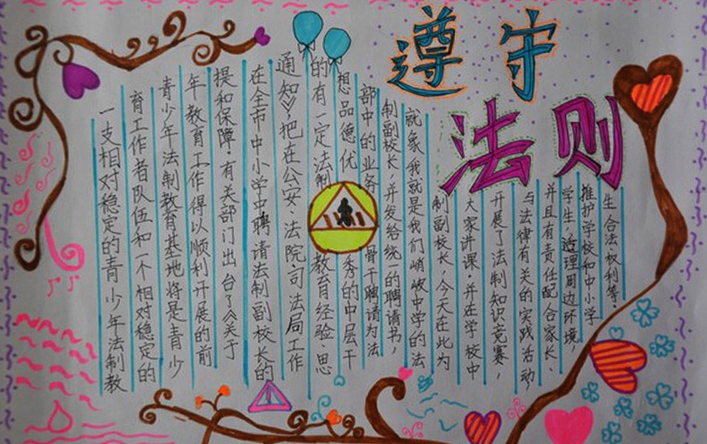 遵守
法则
一支相对稳定的青少年法制教
育工作者队伍和一个相对稳定的
青少年法制教育基地将是青少
年教育工作得以顺利开展的前
提和保障,有关部门出台了《关于
在全市中小学中聘请法制副校长的
通知》,把在公安、法院司法局工作
的有一定法制教育经验、思
想品德优秀的中层干
部中的业务骨干聘请为法
制副校长,并发给统一的聘请书,
就象我就是我们峭岐中学的法
制副校长,今天在此为
大家讲课,并在学校中
开展了法制知识竞赛,
与法律有关的实践活动
并且有责任配合家长、
学生,理周边环境
推护学校和中小学
生合法权利等。